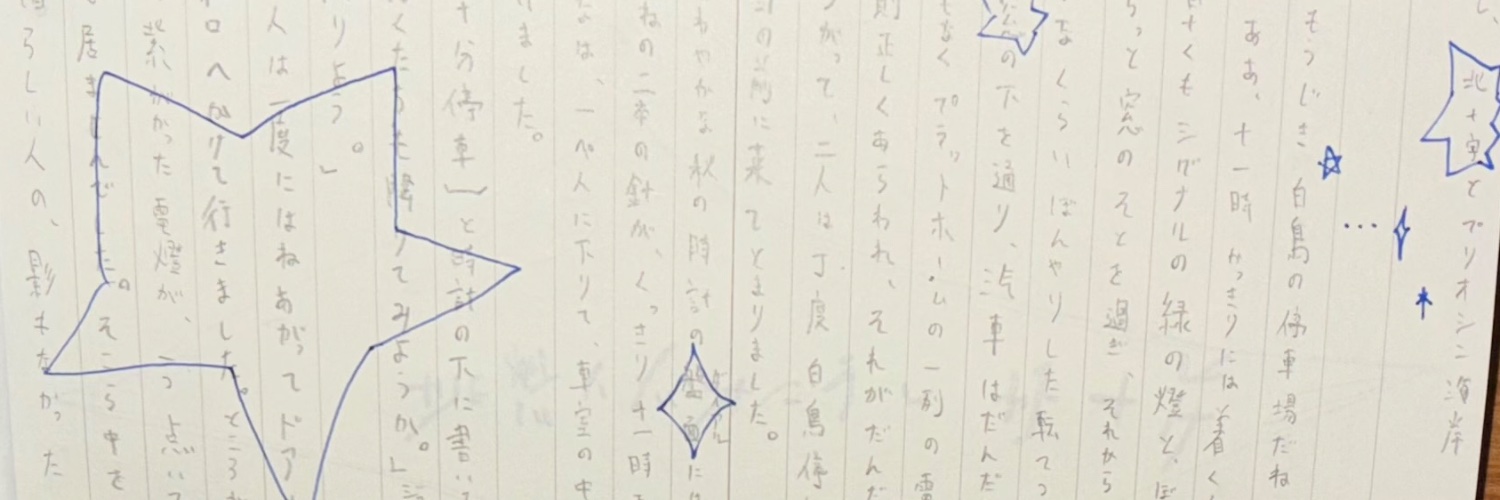 し、
北十字とプリオシン海岸
もうじき白鳥の停車場だね
ああ、十一時かっきりには着く
さくもシグナルの緑の燈と、ぼ
らっと窓のそとを過ぎ、それから
くらいぼんやりした転てつ
窓の下を通り、汽車はだんだ
もなくプラットホームの一列の電
則正しくあらわれ、それがだんだ
がって、二人は丁度白鳥停
の前に来てとまりました。
わやかな秋の時計の盤面には
ねの二本の針が、くっきり十一時
は、一ぺんに下りて、車室の中
ました。
十分停車〕と時計の下に書い
くたちも降りてみようか。」
りよう。」
人は一度にはねあがってドア
口へかけて行きました。ところが
紫がかった電燈が、一つ点いて
居ませんでした。そこら中を
らしい人の、影もなかった